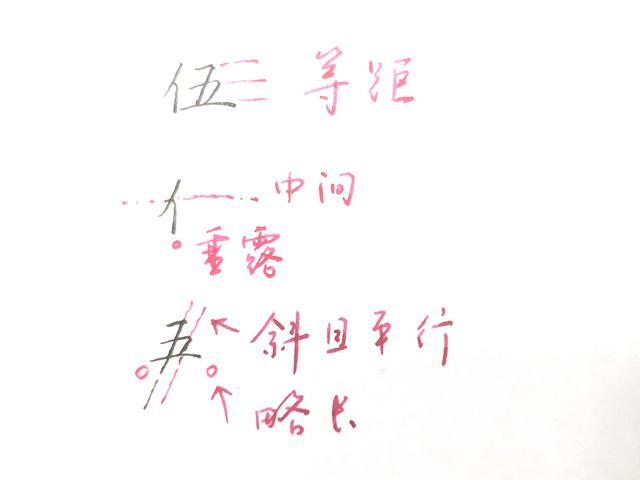 伍 等距
亻 中间
垂露
五 斜且平行
略长